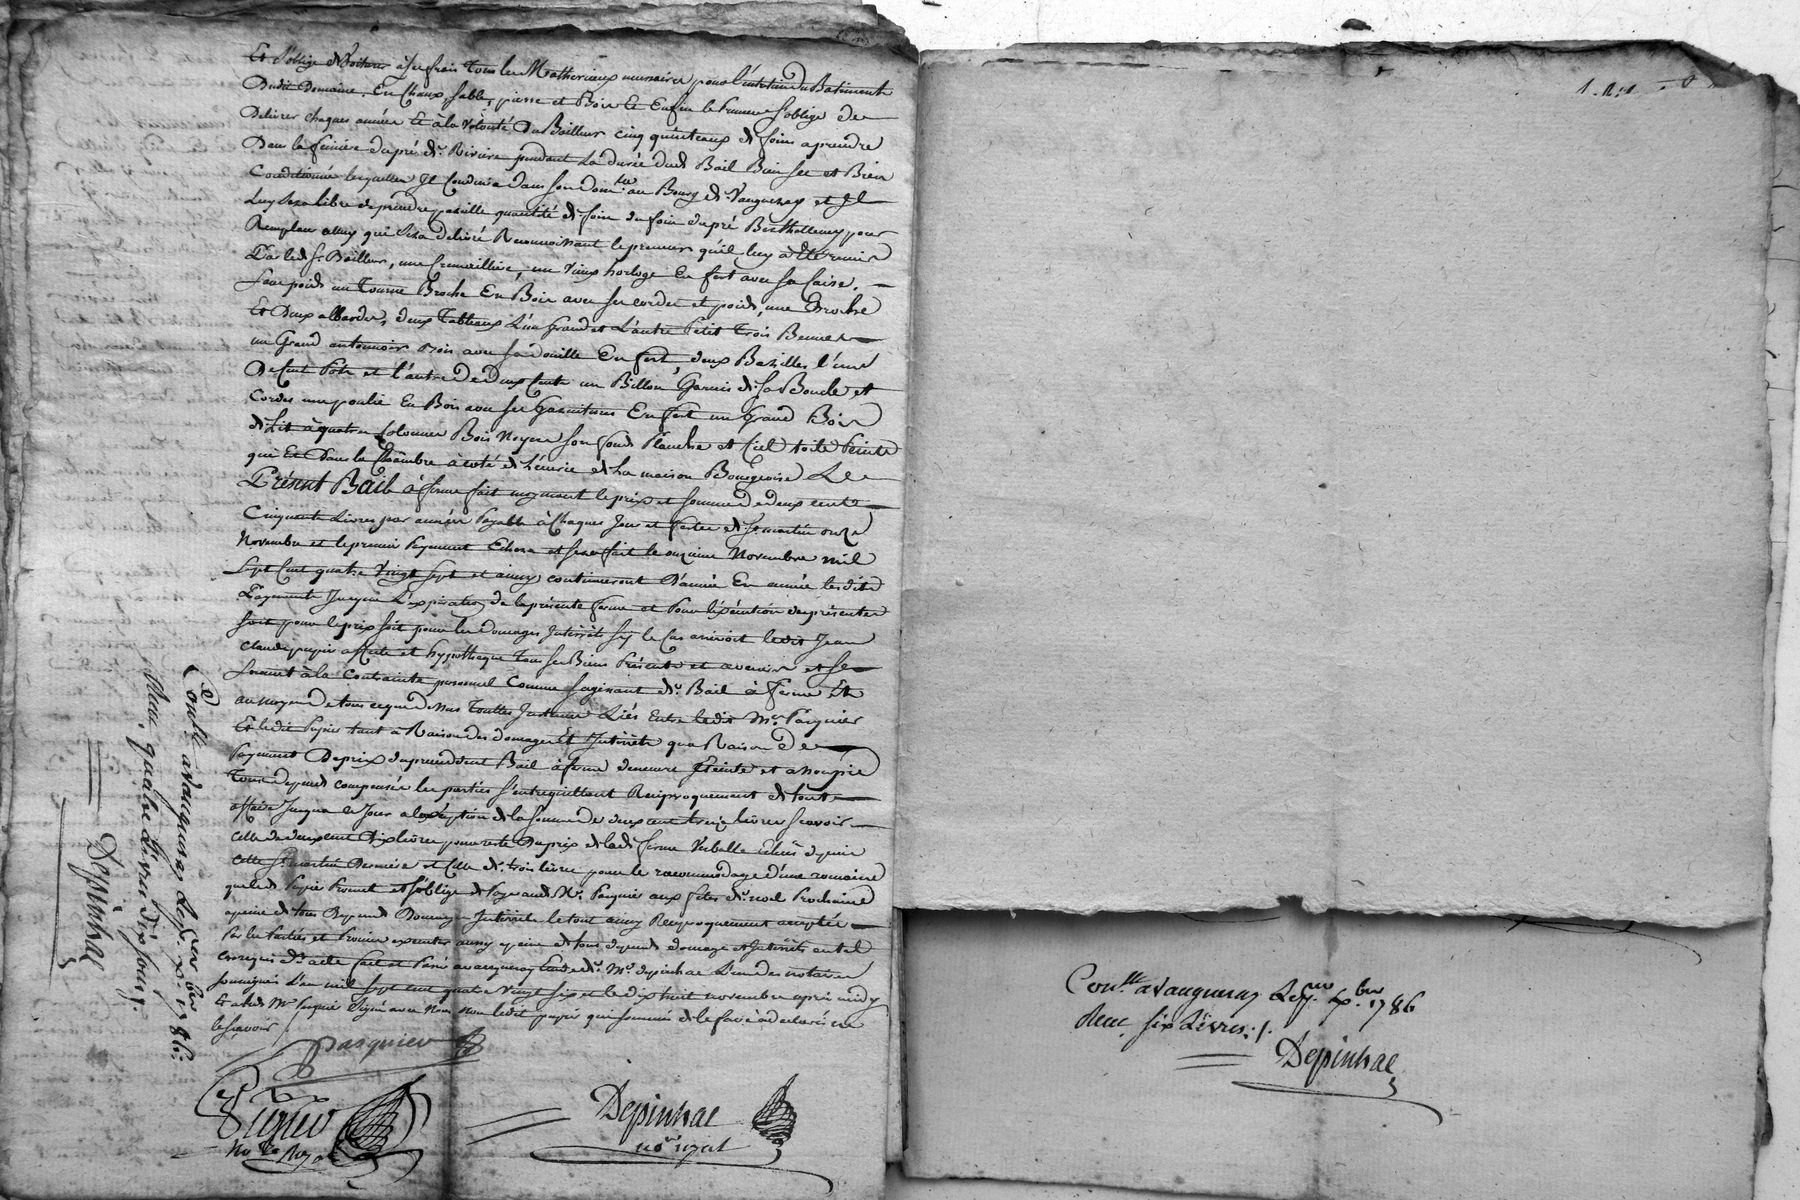 Et s'oblige de Voiturer à ses frais tous les Matherieaux nécessaires pour l'entretien du Batiments
Dudit Domaine. En Chaux, sable, pierre et Bois Et Enfin le Preneur s'oblige de
Delivrer chaques année Et à la Volonté Du Bailleur cinq quinteaux de foins aprendre
Dans la feinière du pré de Rivière pendant La durée dudt Bail Bien sec et Bien
Conditionné lesquelles Il Conduira dans son domlle au Bourg de Vaugneray et Il
Luy sera libre de prendre pareille quantité de foin du foin du pré Berthollemy pour
Remplacer celluy qui sera delivré Reconnoissant le preneur qu'il luy a Eté remis
Par ledt Sr Bailleur, une Cremaillière, un vieux horloge En fert avec sa Caise,
sans poids un Tourne Broche En Bois avec ses cordes et poids, une Broche
Et Deux allbardes, deux Tableaux L'un Grand et L'autre Petit Trois Bennes
un Grand antonnoir Bois avec sa douille En fert, deux Bazilles l'une
De Cent Pots et l'autre De deux Cents un Billon Garnis de sa Boucle et
Cordes une poulie En Bois avec ses Garnitures En fert un Grand Bois
de Lit à quatres Colonnes Bois Noyer son fonds Planche et Ciel toile Peinte
qui Est Dans la Chambre à coté de L'écurie de La maison Bourgeoise Le
Présent Bail à ferme fait moyenant le prix et somme de deux cent
Cinquante Livres par année Payable à Chaques Jour et feste de St martin onze
Novembre et le premier Payement Echera et sera fait le onzieme Novembre mil
sept Cent quatre Vingt sept et ainsy continueront D'année En année lesdits
Payements Jusqu'a L'expiration de la présente ferme et Pour l'éxécution des présentes
soit pour le prix soit pour les domages Intérêts sy le Cas arrivoit ledit Jean
Claude papier affecte et hypotheque Tous ses Biens Présents et avenirs et se
soumet à la Contrainte personnel Comme sagissant de Bail à ferme Et
au moyen de tous ce que dessus Touttes Instances Liés Entre ledit Mr Pasquier
Et ledit Papier tant à Raison des domages Et Intérêts qua Raison De
Payement Du prix du precedent Bail à ferme demeure Eteinte et assoupie
Tous depends compensés les parties S'entrequittant Reciproquement de tout
affaire Jusqua ce Jour a lexception de la somme de deux cent treize livres scavoir
celle de deux cent Dix livres pour reste Du prix de ladt ferme Verballe Echus depuis
cette St martin Derniere et Celle de trois livres pour le racommodage d'une romaine
que ledt Papier Promet et s'oblige de Payer audt Mr Pasquier aux fetes de noel Prochaine
apeine de tous Depends Domages Interets le tout ainsy Reciproquement accepté
Par les Parties et Promis executer ainsy apeine de tous depends domages et Interets en tel
cas requis Dt acte fait et Passé avaugneray Etude de Me depinhac L'un des notaires
soussignés L'an mil sept cent quatre Vingt six et le dix huit novembre après midy
Et a ledt Mr Pasquier Signé avec Nous non ledit papier qui sommé de le faire a declaré ne
le scavoir /
Pasquier
nore Royal
Depinhac
nore royal
Conllé avaugneray Le 1er xbre 1786
Recu quatre Livres dix sous /.
Depinhac
Conllé avaugneray Le 1er xbre 1786
Recu six Livres ./.
Depinhac